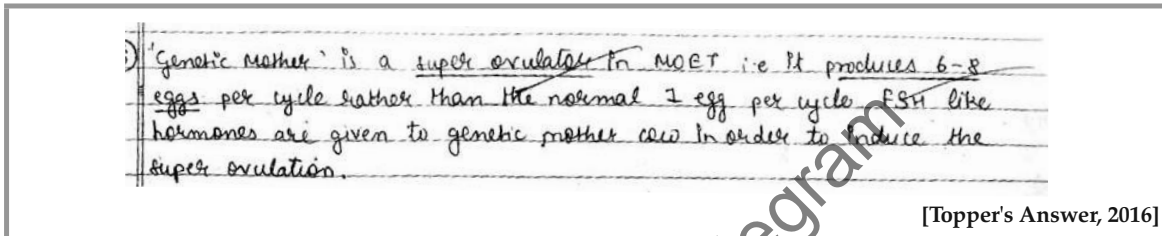 'Genetic Mother' is a super ovulator in MOET i.e it produces 6-8
eggs per cycle rather than the normal 1 egg per cycle. FSH like
hormones are given to genetic mother cow in order to induce the
super ovulation.
egram
[Topper's Answer, 2016]